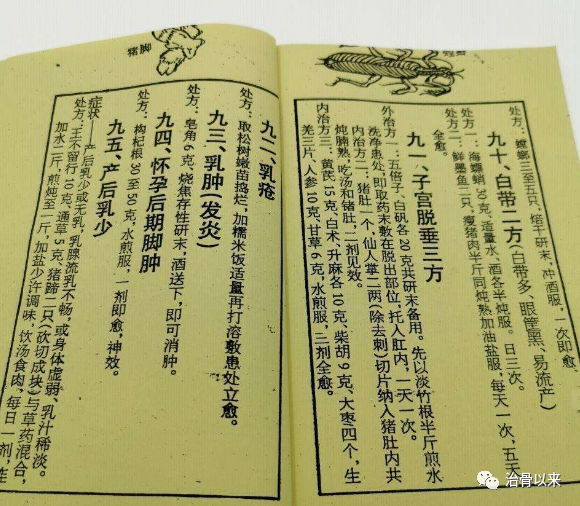 处方：蟑螂三至五只，焙干研末，冲酒服，一次即愈。
九十、白带二方（白带多、眼眶黑、易流产）
处方一：海螵蛸30克，适量水、酒各半炖服。日三次。
处方二：鲜墨鱼二只，瘦猪肉半斤同炖熟加油盐服，每天一次，五天
全愈。
九一、子宫脱垂三方
外治方一：五倍子、白矾各20克共研末备用。先以淡竹根半斤煎水
洗净患处，即取药末敷在脱出部位，托人肛内，一天一次。
内治方二：猪肚一个，仙人掌二两（除去刺）切片纳入猪肚内共
炖腩熟，吃汤和锗肚，二剂见效。
内治方三：黄芪15克，白术、升麻各10克、柴胡9克、大枣四个，生
羌三片，人参10克、甘草6克，水煎服，三剂全愈。
猪脚
九二、乳疮
处方：取松树嫩苗捣烂，加糯米饭适量再打溶敷患处立愈。
九三、乳肿（发炎）
处方：皂角6克，烧焦存性研末，酒送下，即可消肿。
九四、怀孕后期脚肿
处方：枸杞根30至50克，水煎服，一剂即愈，神效。
九五、产后乳少
症状——产后乳少或无乳，乳腺流乳不畅，或身体虚弱、乳汁稀淡。
处方：王不留行10克、通草5克、猪蹄二只（砍切成块）与草药混合，
加水二斤，煎炖至一斤，加盐少许调味，饮汤食肉，每日一剂，连
治骨以来